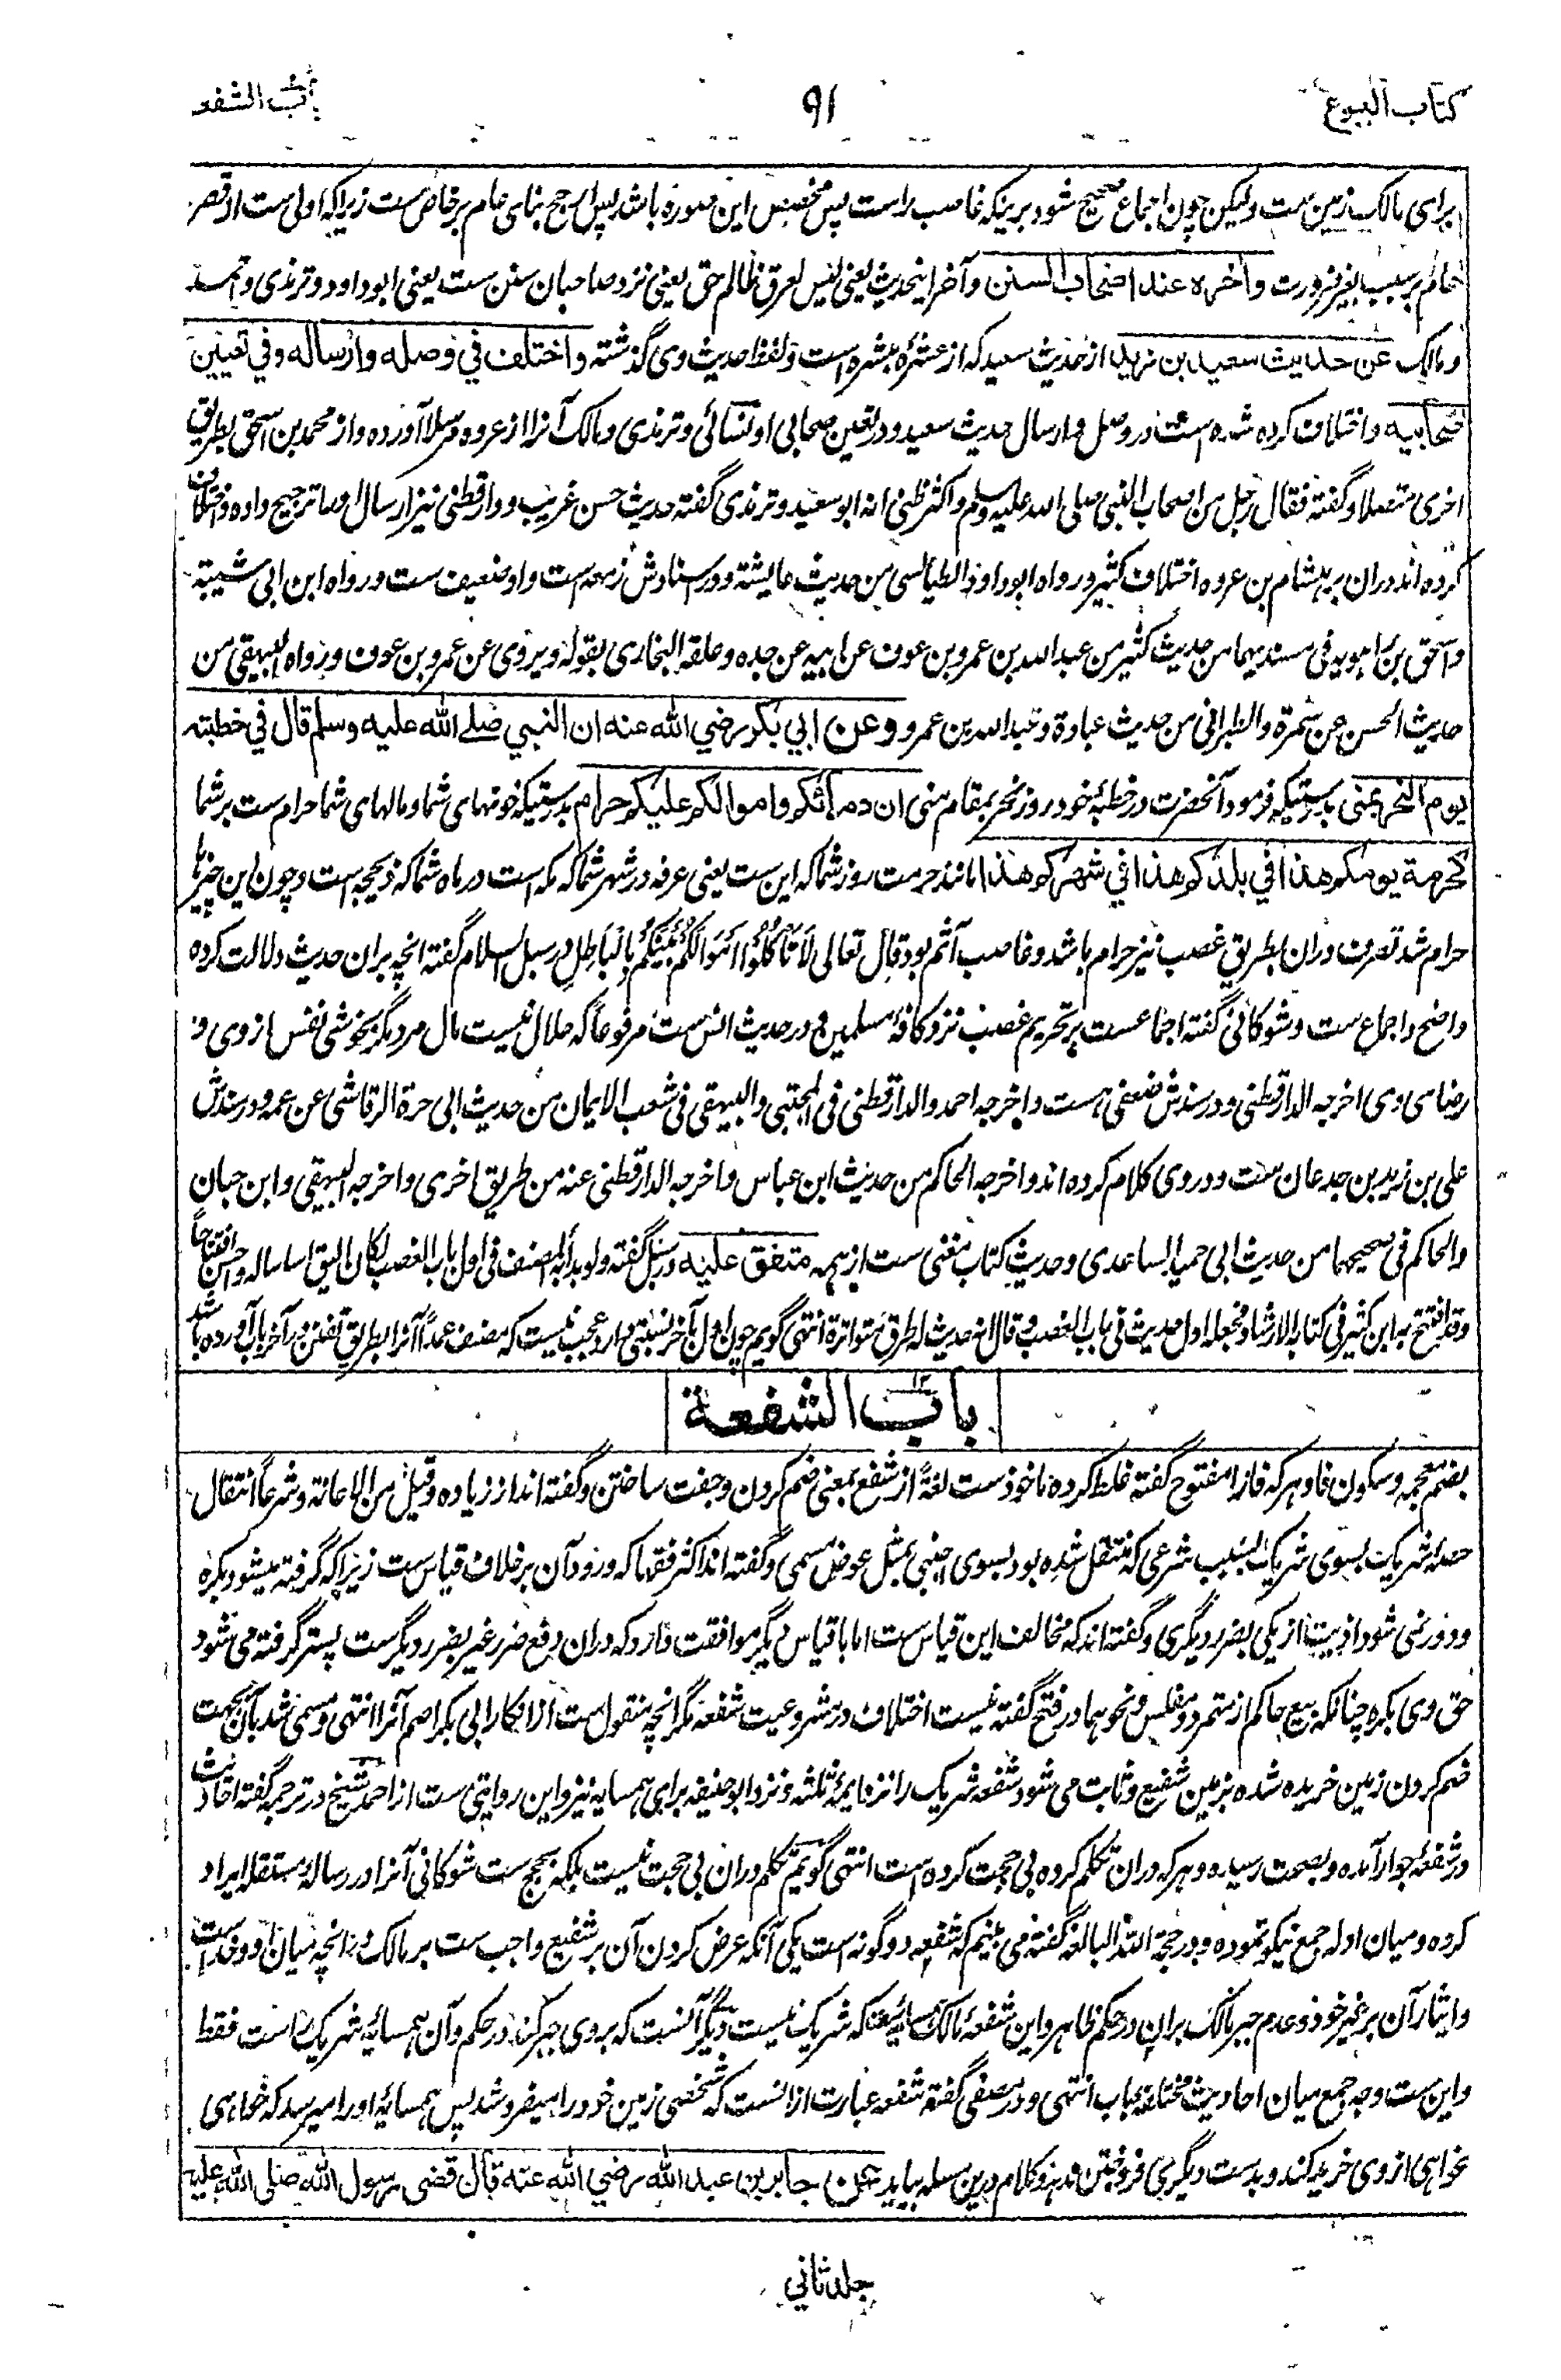 کتاب البیوع
۹۱
باب الشفعہ
برای مالک زمین ست ولیکن چون اجماع صحیح شود برینکہ غاصب راست پس مخصص این صورہ باشد پس ارجح بنای عام بر خاص ست زیراکہ اولی ست از قصر
عام بر سبب بغیر ضرورت وآخرہ عند اصحاب السنن وآخر اینحدیث یعنی لیس لعرق ظالم حق یعنی نزد صاحبان سنن ست یعنی ابوداود وترندی واحمد
ومالک عن حدیث سعید بن زید از حدیث سعید کہ از عشرۂ مبشرہ است ولفظ حدیث وی گذشتہ واختلف في وصلہ وارسالہ وفي تعیین
صحابیہ واختلاف کردہ شدہ است در وصل وارسال حدیث سعید ودر تعین صحابی او نسائی وترندی ومالک آنرا از عروہ مرسلا آوردہ واز محمد بن اسحق بطریق
اخری متصلا وگفتہ فقال رجل من اصحاب النبی صلی اللہ علیہ وسلم واکثر ظنی انہ ابو سعید وترندی گفتہ حدیث حسن غریب ودارقطنی نیز ارسال او را ترجیح دادہ واختلاف
کردہ اند دران بر ہشام بن عروہ اختلاف کثیر ورواہ ابوداود الطیالسی من حدیث عایشۃ ودر اسنادش زمعہ است واو ضعیف ست ورواہ ابن ابی شیبۃ
واسحق بن راہویہ فی مسندیہما من حدیث کثیر من عبداللہ بن عمرو بن عوف عن ابیہ عن جدہ وعلقہ البخاری بقولہ ویروی عن عمرو بن عوف ورواہ البیہقی من
حدیث الحسن عن سمرۃ والطبرانی من حدیث عبادۃ وعبداللہ بن عمرو وعن ابي بکر رضي الله عنه ان النبي صلے الله عليه وسلم قال في خطبته
یوم النحر بمنی بدرستیکہ فرمود آنحضرت در خطبۂ خود روز نحر بمقام منی ان دماءکم واموالکم علیکم حرام بدرستیکہ خونہای شما ومالہای شما حرام ست بر شما
کحرمة یومکم هذا في بلدکم هذا في شهرکم هذا مانند حرمت روز شما کہ این ست یعنی عرفہ در شہر شما کہ مکہ است در ماہ شما کہ ذیحجہ است وچون این چیزہا
حرام شد تصرف دران بطریق غصب نیز حرام باشد وغاصب آثم بود قال تعالی لَا تَأْكُلُوا أَمْوَالَكُمْ بَيْنَكُمْ بِالْبَاطِلِ در سبل السلام گفتہ انچہ بران حدیث دلالت کردہ
واضح واجماع ست وشوکانی گفتہ اجماعست بر تحریم غصب نزد کافۂ مسلمین ودر حدیث انس ست مرفوعاً کہ حلال نیست مال مرد مگر بخوشی نفس از وی و
رضای وی اخرجہ الدارقطنی ودر سندش ضعفی ہست واخرجہ احمد والدارقطنی فی المجتبی والبیہقی فی شعب الایمان من حدیث ابی حرۃ الرقاشی عن عمہ ودر سندش
علی بن زید بن جدعان ست ودر وی کلام کردہ اند واخرجہ الحاکم من حدیث ابن عباس واخرجہ الدارقطنی عنہ من طریق اخری واخرجہ البیہقی وابن حبان
والحاکم فی صحیحہما من حدیث ابی حمید الساعدی وحدیث کتاب مغنی ست از ہمہ متفق علیه ودر سبل گفتہ ولو بدأ بہ المصنف فی اول باب الغصب لکان الیق اساسا لہ واحسن افتتاحاً
وقد افتتح بہ ابن کثیر فی کتاب الارشاد وجعلہ اول حدیث فی باب الغصب وقال انہ حدیث لہ طرق متواترۃ انتہی گویم چون اول بآخر نسبتی دارد عجب نیست کہ مصنف عمداً آنرا بطریق تفنن در آخر باب آوردہ باشد
باب الشفعة
بضم معجمہ وسکون فا وہر کہ فا را مفتوح گفتہ غلط کردہ ماخوذ ست لغۃً از شفع بمعنی ضم کردن وجفت ساختن وگفتہ اند از زیادہ وقیل من الاعانۃ وشرعاً انتقال
حصۂ شریک بسوی شریک بسبب شرعی کہ منتقل شدہ بود بسوی اجنبی بمثل عوض مسمی وگفتہ اند اکثر فقہا کہ ورود آن بر خلاف قیاس ست زیراکہ گرفتہ میشود بکرہ
ودور نمی شود اذیت از یکی بضرر دیگری وگفتہ اند کہ مخالف این قیاس ست اما با قیاس دیگر موافقت دارد کہ دران دفع ضرر غیر بضرر دیگر ست پستر گرفتہ می شود
حق وی بکرہ چنانکہ بیع حاکم از متمرد ومفلس ونحوہما در فتح گفتہ نیست اختلاف در مشروعیت شفعہ مگر انچہ منقول ست از انکار ابی بکر اصم آنرا انتہی ومسمی شد بآن بجہت
ضم کردن زمین خریدہ شدہ بزمین شفیع وثابت می شود شفعہ شریک را نزد ایمۂ ثلثہ ونزد ابوحنیفہ برای ہمسایہ نیز واین روایتی ست از احمد شیخ در ترجمہ گفتہ احادیث
در شفعۂ جوار آمدہ وبصحت رسیدہ وہر کہ دران تکلم کردہ بی حجت کردہ است انتہی گویم تکلم دران بی حجت نیست بلکہ بحجج ست شوکانی آنرا در رسالۂ مستقلہ ایراد
کردہ ومیان ادلہ جمع نیکو نمودہ ودر حجۃ اللہ البالغہ گفتہ می بینم کہ شفعہ دوگونہ است یکی آنکہ عرض کردن آن بر شفیع واجب ست بر مالک در انچہ میان او وخداست
وایثار آن بر غیر خود وعدم جبر مالک بران در حکم ظاہر واین شفعۂ مالک ہمسایہ است کہ شریک نیست دیگر آنست کہ بر وی جبر کنند در حکم وآن ہمسایۂ شریک راست فقط
واین ست وجہ جمع میان احادیث مختلفۂ باب انتہی ودر مصفی گفتہ شفعہ عبارت ازانست کہ شخصی زمین خود را میفروشد پس ہمسایۂ او را میرسد کہ خواہی
نخواہی از وی خرید کند وبدست دیگری فروختن ندہد وکلام درین مسلہ بیاید عن جابر بن عبد الله رضي الله عنه قال قضی رسول الله صلی الله علیه
جلد ثاني